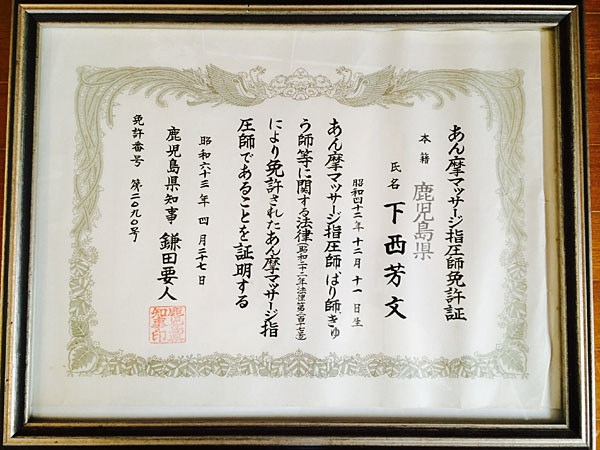 あん摩マッサージ指圧師免許証
本籍 鹿児島県
氏名 下西芳文
昭和四十二年十二月十一日生
あん摩マッサージ指圧師はり師きゅ
う師等に関する法律(昭和二十二年法律第二百十七号)
により免許されたあん摩マッサージ指
圧師であることを証明する
昭和六十三年四月二十七日
鹿児島県知事 鎌田要人
免許番号 第二〇九〇号
鹿児島県
知事印